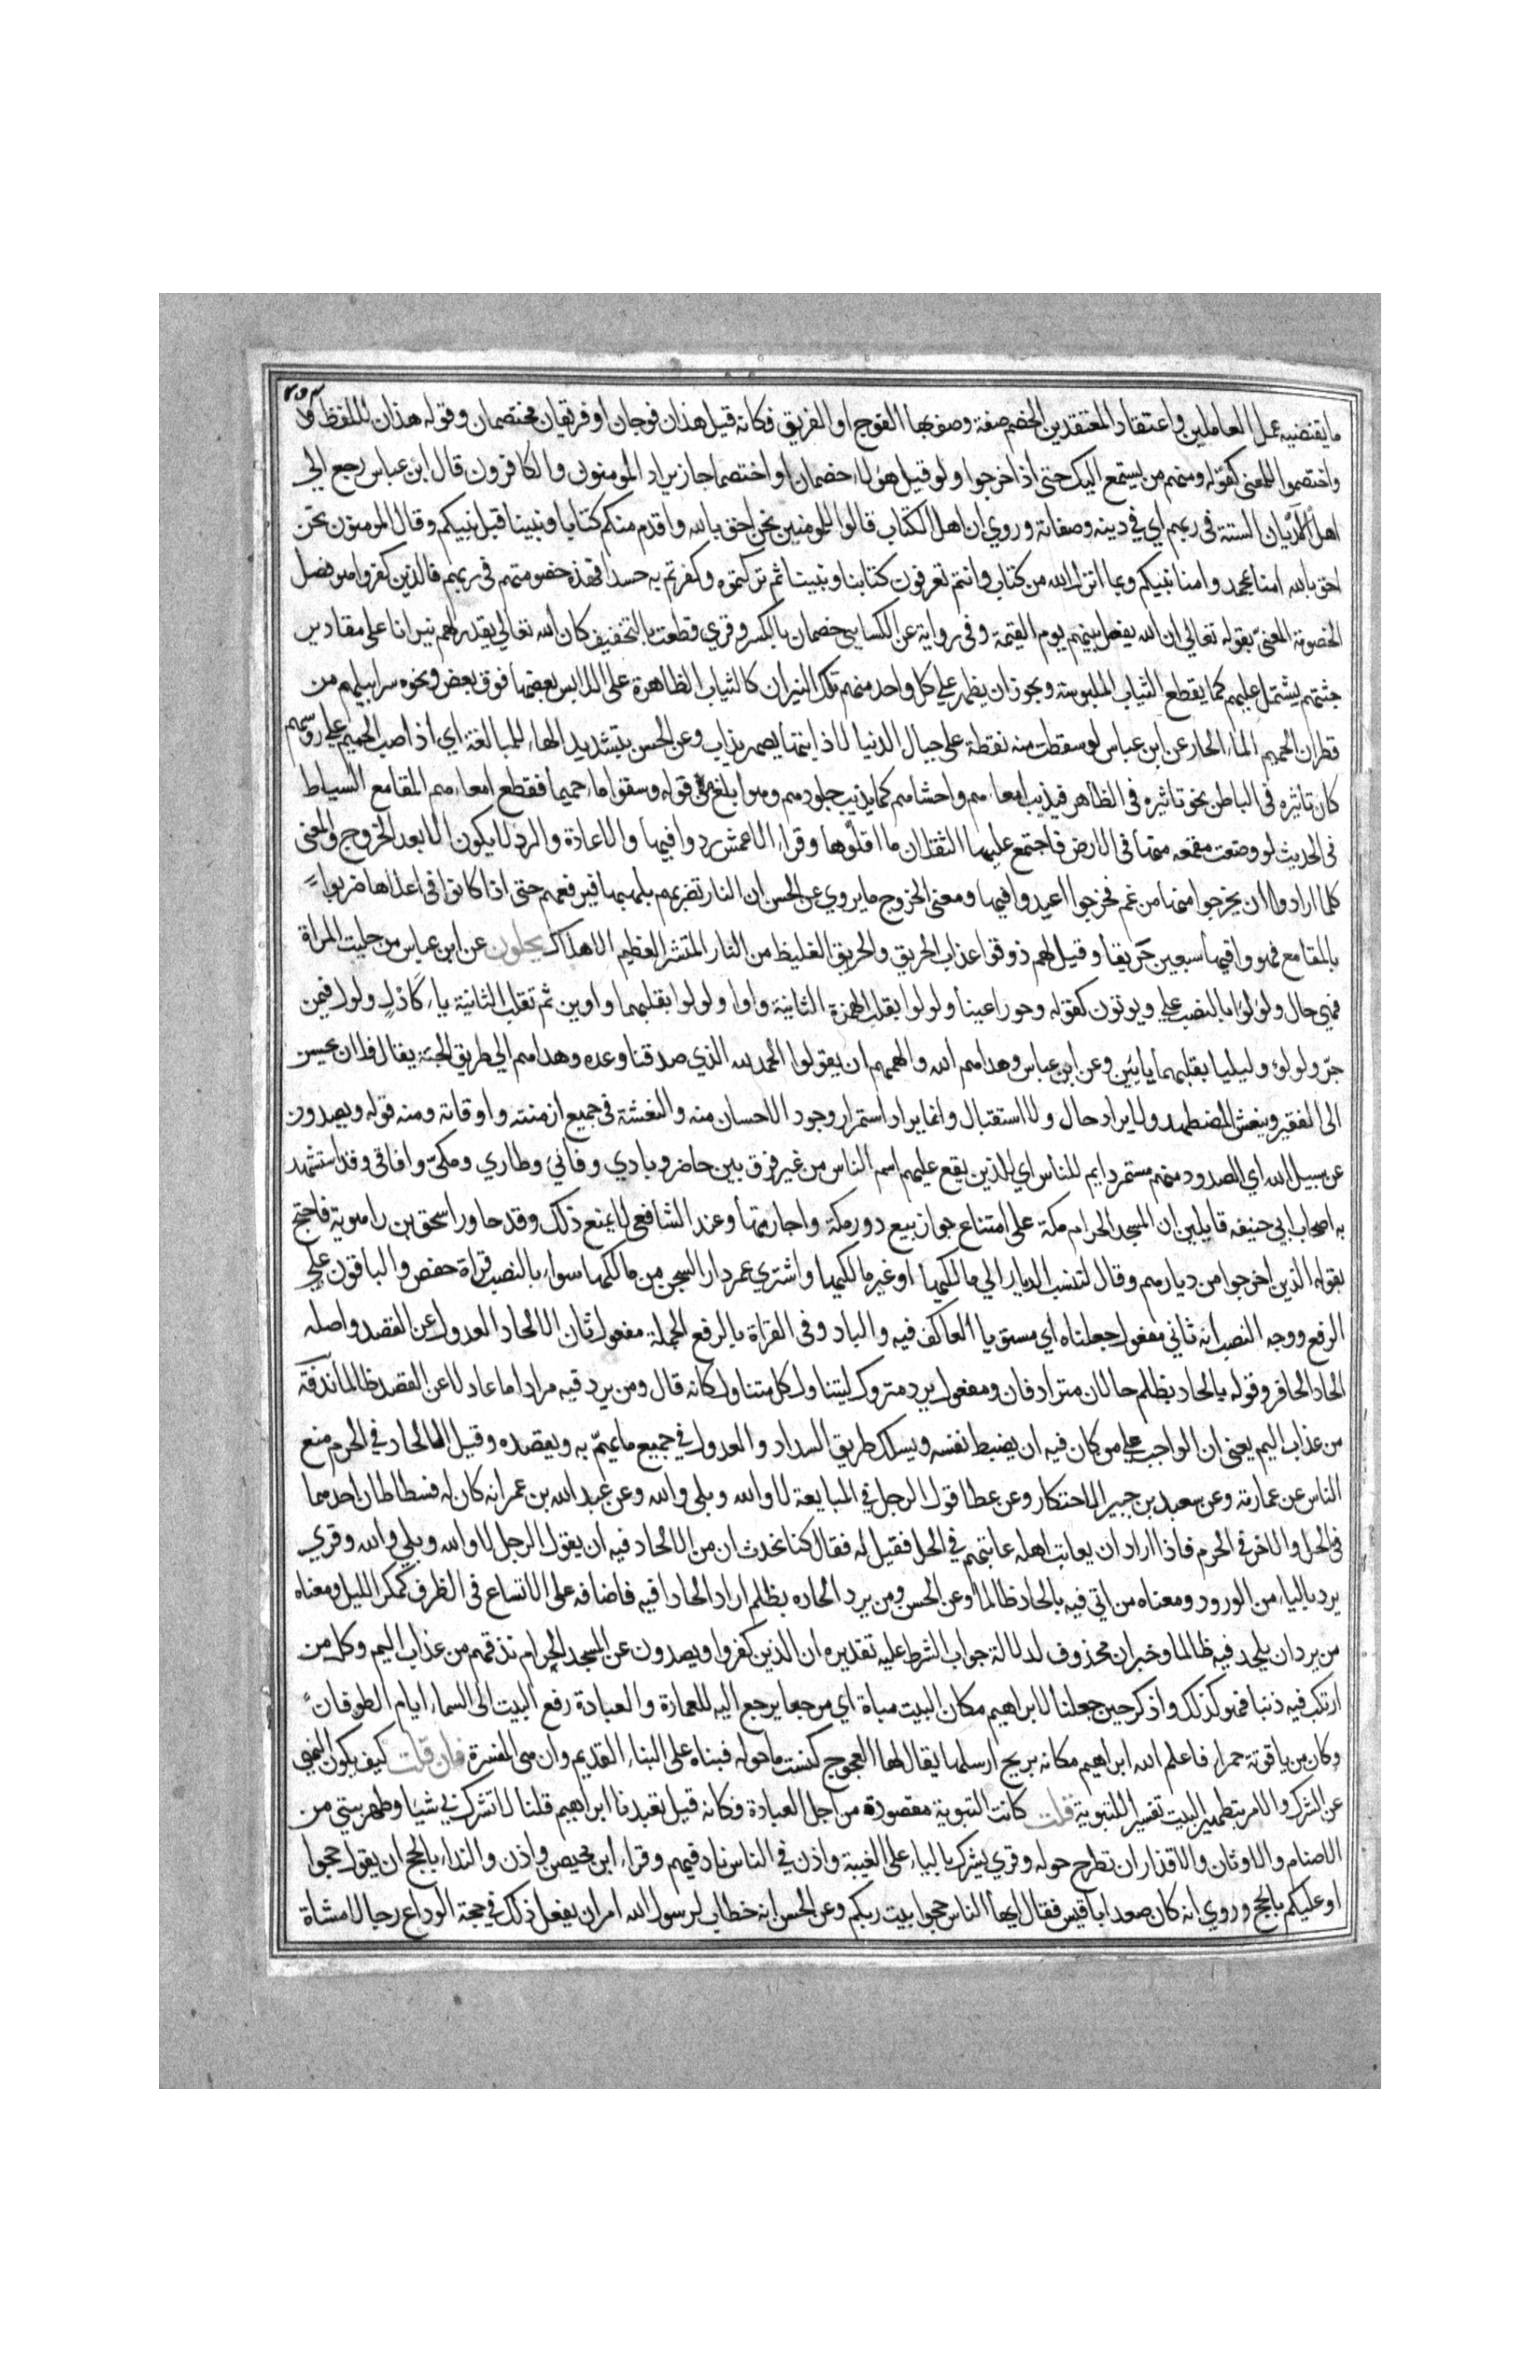 ٢٥٣
ما يقتضيه عمل العاملين واعتقاد المعتقدين الخصم صفة وصف بها الفوج او الفريق فكانه قيل هذان فوجان او فريقان مختصمان وقوله هذان للفظ
واختصموا للمعنى كقوله ومنهم من يستمع اليك حتى اذا خرجوا ولو قيل هولاء خصمان او اختصما جاز يراد المومنون والكافرون قال ابن عباس رجع الي
اهل الاديان الستة في ربهم اي في دينه وصفاته وروي ان اهل الكتاب قالوا للمومنين نحن احق بالله واقدم منكم كتابا ونبينا قبل نبيكم وقال المومنون نحن
احق بالله امنا بمحمد وامنا بنبيكم وبما انزل الله من كتاب وانتم تعرفون كتابنا ونبينا ثم تركتموه وكفرتم به حسدا فهذه خصومتهم في ربهم فالذين كفروا هو فصل
الخصومة المعني بقوله تعالي ان الله يفصل بينهم يوم القيمة وفي رواية عن الكسايي خصمان بالكسر وقري قطعت بالتخفيف كان الله تعالي يقدر لهم نيرانا على مقادير
جثثهم يشتمل عليهم كما يقطع الثياب الملبوسة ويجوز ان يظهر علي كل واحد منهم تلك النيران كالثياب الظاهرة على اللابس بعضها فوق بعض ونحوه سرابيلهم من
قطران الحميم الماء الحار عن ابن عباس لو سقطت منه نقطة على جبال الدنيا لاذابتها يصهر يذاب وعن الحسن بتشديد الهاء للمبالغة اي اذا صب الحميم علي روسهم
كان تاثيره في الباطن نحو تاثيره في الظاهر فيذيب امعاءهم واحشاهم كما يذيب جلودهم وهو ابلغ من قوله وسقوا ماء حميما فقطع امعاءهم المقامع السياط
في الحديث لو وضعت مقمعه منها في الارض فاجتمع عليها الثقلان ما اقلوها وقراء الاعمش ردوا فيها والاعادة والرد لا يكون الا بعد الخروج والمعنى
كلما ارادوا ان يخرجوا منها من غم فخرجوا اعيدوا فيها ومعنى الخروج ما يروي عن الحسن ان النار تضربهم بلهبها فيرفعهم حتى اذا كانوا في اعلاها ضربوا
بالمقامع فهووا فيها سبعين خريفا وقيل لهم ذوقوا عذاب الحريق والحريق الغليظ من النار المنتشر العظيم الاهلاك يحلون عن ابن عباس من حليت المراة
فهي حال ولؤلؤا بالنصب علي ويوتون كقوله وحورا عينا ولولوا بقلب الهمزة الثانية واوا ولوليا بقلبهما واوين ثم تقلب الثانية ياء كادْلٍ ولول فيمن
جرّ ولولؤ وليليا بقلبهما يايين وعن ابن عباس وهداهم الله والهمهم ان يقولوا الحمد لله الذي صدقنا وعده وهداهم الي طريق الجنة يقال فلان يحسن
الى الفقير وينعش المضطهد ولا يراد حال ولا استقبال وانما يراد استمرار وجود الاحسان منه والنعشة في جميع ازمنته واوقاته ومنه قوله ويصدون
عن سبيل الله اي الصدود منهم مستمر دايم للناس اي للذين يقع عليهم اسم الناس من غير فرق بين حاضر وبادي وقاني وطاري ومكيّ وافاقي وقد استشهد
به اصحاب ابي حنيفه قايلين ان المسجد الحرام مكة على امتناع جواز بيع دور مكة واجارتها وعند الشافعي لا يمنع ذلك وقد حاور اسحق بن راهوية فاحتج
بقوله الذين اخرجوا من ديارهم وقال لتنسب الديار الي مالكيها او غير مالكيها واشتري عمر دار السجن من مالكها سواء بالنصب قراة حفص والباقون علي
الرفع ووجه النصب انه ثاني مفعول جعلناه اي مستويا العاكف فيه والباد وفي القراة بالرفع الجملة مفعول ثان الالحاد العدول عن القصد واصله
الحاد الحافر وقوله بالحاد بظلم حالان مترادفان ومفعول يرد متروك ليتناول كل متناول كانه قال ومن يرد فيه مرادا ما عادلا عن القصد ظالما نذقه
من عذاب اليم يعني ان الواجب علي من كان فيه ان يضبط نفسه ويسلك طريق السداد والعدول في جميع ما يهمّ به ويقصده وقيل الالحاد في الحرم منع
الناس عن عمارته وعن سعيد بن جبير الاحتكار وعن عطا قول الرجل في المبايعة لا والله وبلى والله وعن عبد الله بن عمر انه كان له فسطاطان احدهما
في الحل والاخر في الحرم فاذا اراد ان يعاتب اهله عاتبهم في الحل فقيل له فقال كنا نحدث ان من الالحاد فيه ان يقول الرجل لا والله وبلي والله وقري
يرد بالياء من الورود ومعناه من اتي فيه بالحاد ظالما وعن الحسن ومن يرد الحاده بظلم اراد الحادا فيه فاضافه على الاتساع في الظرف كمكر الليل ومعناه
من يرد ان يلحد فيه ظالما وخبر ان محذوف لدلالة جواب الشرط عليه تقديره ان الذين كفروا ويصدون عن المسجد الحرام نذقهم من عذاب اليم وكل من
ارتكب فيه ذنبا فهو كذلك واذكر حين جعلنا لابراهيم مكان البيت مباة اي مرجعا يرجع اليه للعمارة والعبادة رفع البيت الى السماء ايام الطوفان
وكان من ياقوتة حمراء فاعلم الله ابراهيم مكانه بريح ارسلها يقال لها الخجوج كنست ما حوله فبناه على البناء القديم وان هي المفسرة فان قلت كيف يكون النهي
عن الشرك والامر بتطهير البيت تفسيرا للتبوية قلت كانت التبوية مقصودة من اجل العبادة فكانه قيل تعبدنا ابراهيم قلنا لا تشرك بي شيا وطهر بيتي من
الاصنام والاوثان والاقذار ان تطرح حوله وقري يشرك بالياء على الغيبة واذن في الناس ناد فيهم وقراء ابن محيصن واذن والنداء بالحج ان يقول حجوا
او عليكم بالحج وروي انه كان صعد ابا قبيس فقال ايها الناس حجوا بيت ربكم وعن الحسن انه خطاب لرسول الله امر ان يفعل ذلك في حجة الوداع رجالا مشاة